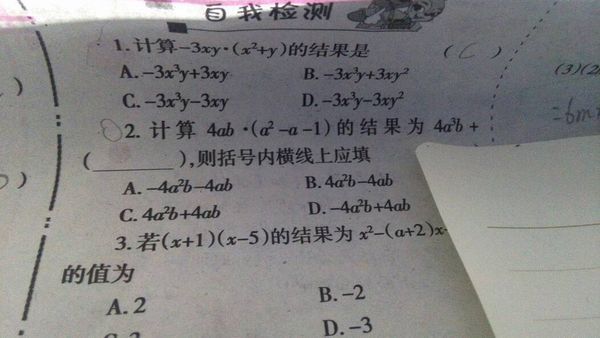 自我检测
1. 计算-3xy·(x²+y)的结果是 ( C )
A. -3x³y+3xy B. -3x³y+3xy²
C. -3x³y-3xy D. -3x³y-3xy²
2. 计算 4ab·(a²-a-1)的结果为 4a³b+
(______),则括号内横线上应填
A. -4a²b-4ab B. 4a²b-4ab
C. 4a²b+4ab D. -4a²b+4ab
3. 若(x+1)(x-5)的结果为 x²-(a+2)x-
的值为
A. 2 B. -2
D. -3
(3)(2
=6m